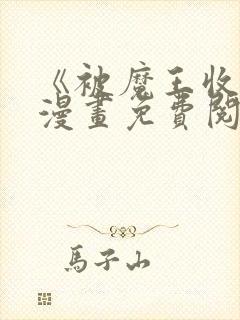 《被魔王收
漫畫免費閱
馬子山